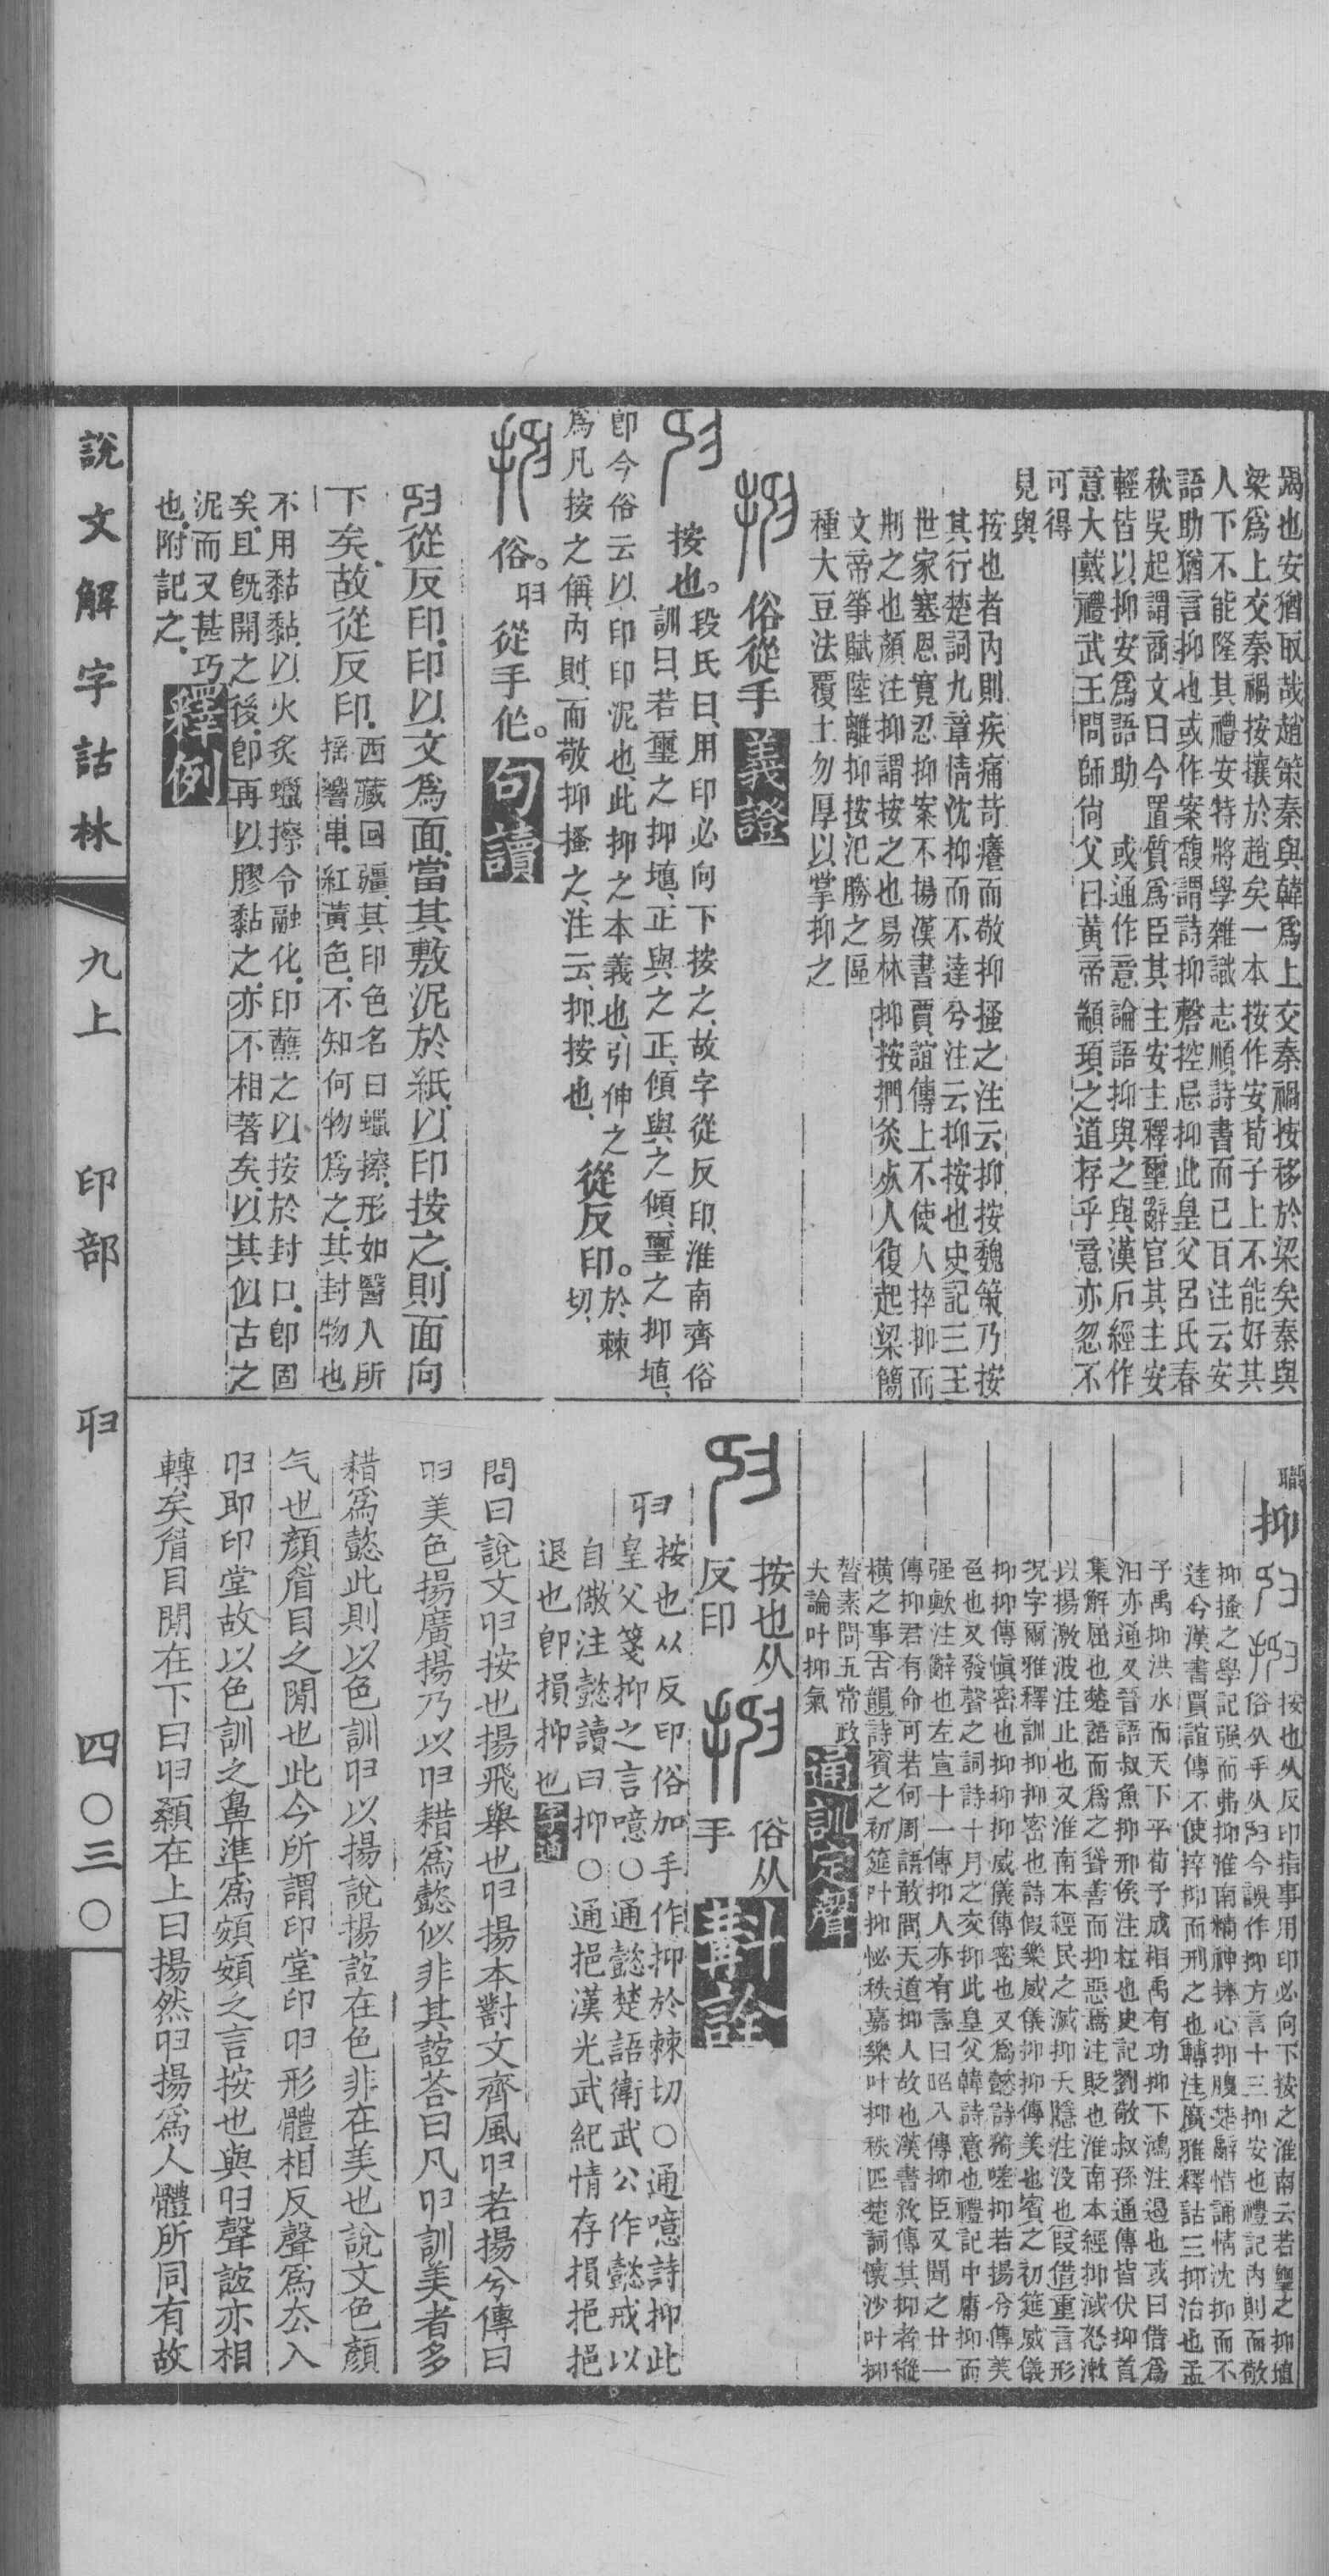 遏也安猶取哉趙策秦與韓爲上交秦禍按移於梁矣秦與
梁爲上交秦禍按攘於趙矣一本按作安荀子上不能好其
人下不能隆其禮安特將學雜識志順詩書而已百注云安
語助猶言抑也或作案馥謂詩抑磬控忌抑此皇父呂氏春
秋吳起謂商文曰今置質爲臣其主安主釋璽辭官其主安
輕皆以抑安爲語助　或通作意論語抑與之與漢石經作
意大戴禮武王問師尙父曰黃帝顓頊之道存乎意亦忽不
可得
見與
按也者內則疾痛苛癢而敬抑搔之注云抑按魏策乃按
其行楚詞九章情沈抑而不達兮注云抑按也史記三王
世家塞恩寬忍抑案不揚漢書賈誼傳上不使人捽抑而
荆之也顏注抑謂按之也易林抑按捫灸㶳人復起梁簡
文帝箏賦陸離抑按氾勝之區
種大豆法覆土勿厚以掌抑之
俗從手義證
按也。段氏曰、用印必向下按之、故字從反印、淮南齊俗
訓曰、若璽之抑埴、正與之正、傾與之傾、璽之抑埴、
卽今俗云以印印泥也、此抑之本義也、引伸之
爲凡按之稱、內則、而敬抑搔之、注云、抑、按也、從反印。於棘切、
俗。𢑏從手作。句讀
𢑏從反印、印以文爲面、當其敷泥於紙、以印按之、則面向
下矣、故從反印、西藏回疆、其印色名曰蠟擦、形如醫人所
搖響串、紅黃色、不知何物爲之、其封物也
不用黏黏、以火炙蠟擦令融化、印蘸之以按於封口、卽固
矣、且旣開之後、卽再以膠黏之、亦不相著矣、以其似古之
泥而又甚巧
也、附記之、釋例
說文解字詁林　九上　印部　𢑏　四〇三〇
職
抑
按也从反印指事用印必向下按之淮南云若璽之抑埴
俗从手从𢑏今誤作抑方言十三抑安也禮記內則而敬
抑搔之學記强而弗抑淮南精神捧心抑腹楚辭惜誦情沈抑而不
達兮漢書賈誼傳不使捽抑而刑之也轉注廣雅釋詁三抑治也孟
子禹抑洪水而天下平荀子成相禹有功抑下鴻注遏也或曰借爲
汨亦通又晉語叔魚抑邢侯注枉也史記劉敬叔孫通傳皆伏抑首
集解屈也楚語而爲之聳善而抑惡焉注貶也淮南本經抑減怒瀨
以揚激波注止也又淮南本經民之滅抑夭隱注沒也叚借重言形
況字爾雅釋訓抑抑密也詩假樂威儀抑抑傳美也賓之初筵威儀
抑抑傳愼密也抑抑抑威儀傳密也又爲懿詩猗嗟抑若揚兮傳美
色也又發聲之詞詩十月之交抑此皇父韓詩意也禮記中庸抑而
强歟注辭也左宣十一傳抑人亦有言曰昭八傳抑臣又聞之廿一
傳抑君有命可若何周語敢問天道抑人故也漢書敘傳其抑者從
橫之事古韻詩賓之初筵叶抑怭秩嘉樂叶抑秩匹楚詞懷沙叶抑
替素問五常政
大論叶抑氣通訓定聲
按也从
反印
俗从
手
斠詮
𢑏
按也从反印俗加手作抑於棘切〇通噫詩抑此
皇父箋抑之言噫〇通懿楚語衛武公作懿戒以
自儆注懿讀曰抑〇通挹漢光武紀情存損挹挹
退也卽損抑也字通
問曰說文𢑏按也揚飛舉也𢑏揚本對文齊風𢑏若揚兮傳曰
𢑏美色揚廣揚乃以𢑏耤爲懿似非其誼荅曰凡𢑏訓美者多
耤爲懿此則以色訓𢑏以揚說揚誼在色非在美也說文色顏
气也顏眉目之閒也此今所謂印堂印𢑏形體相反聲爲厺入
𢑏卽印堂故以色訓之鼻準爲頞頞之言按也與𢑏聲誼亦相
轉矣眉目閒在下曰𢑏顙在上曰揚然𢑏揚爲人體所同有故